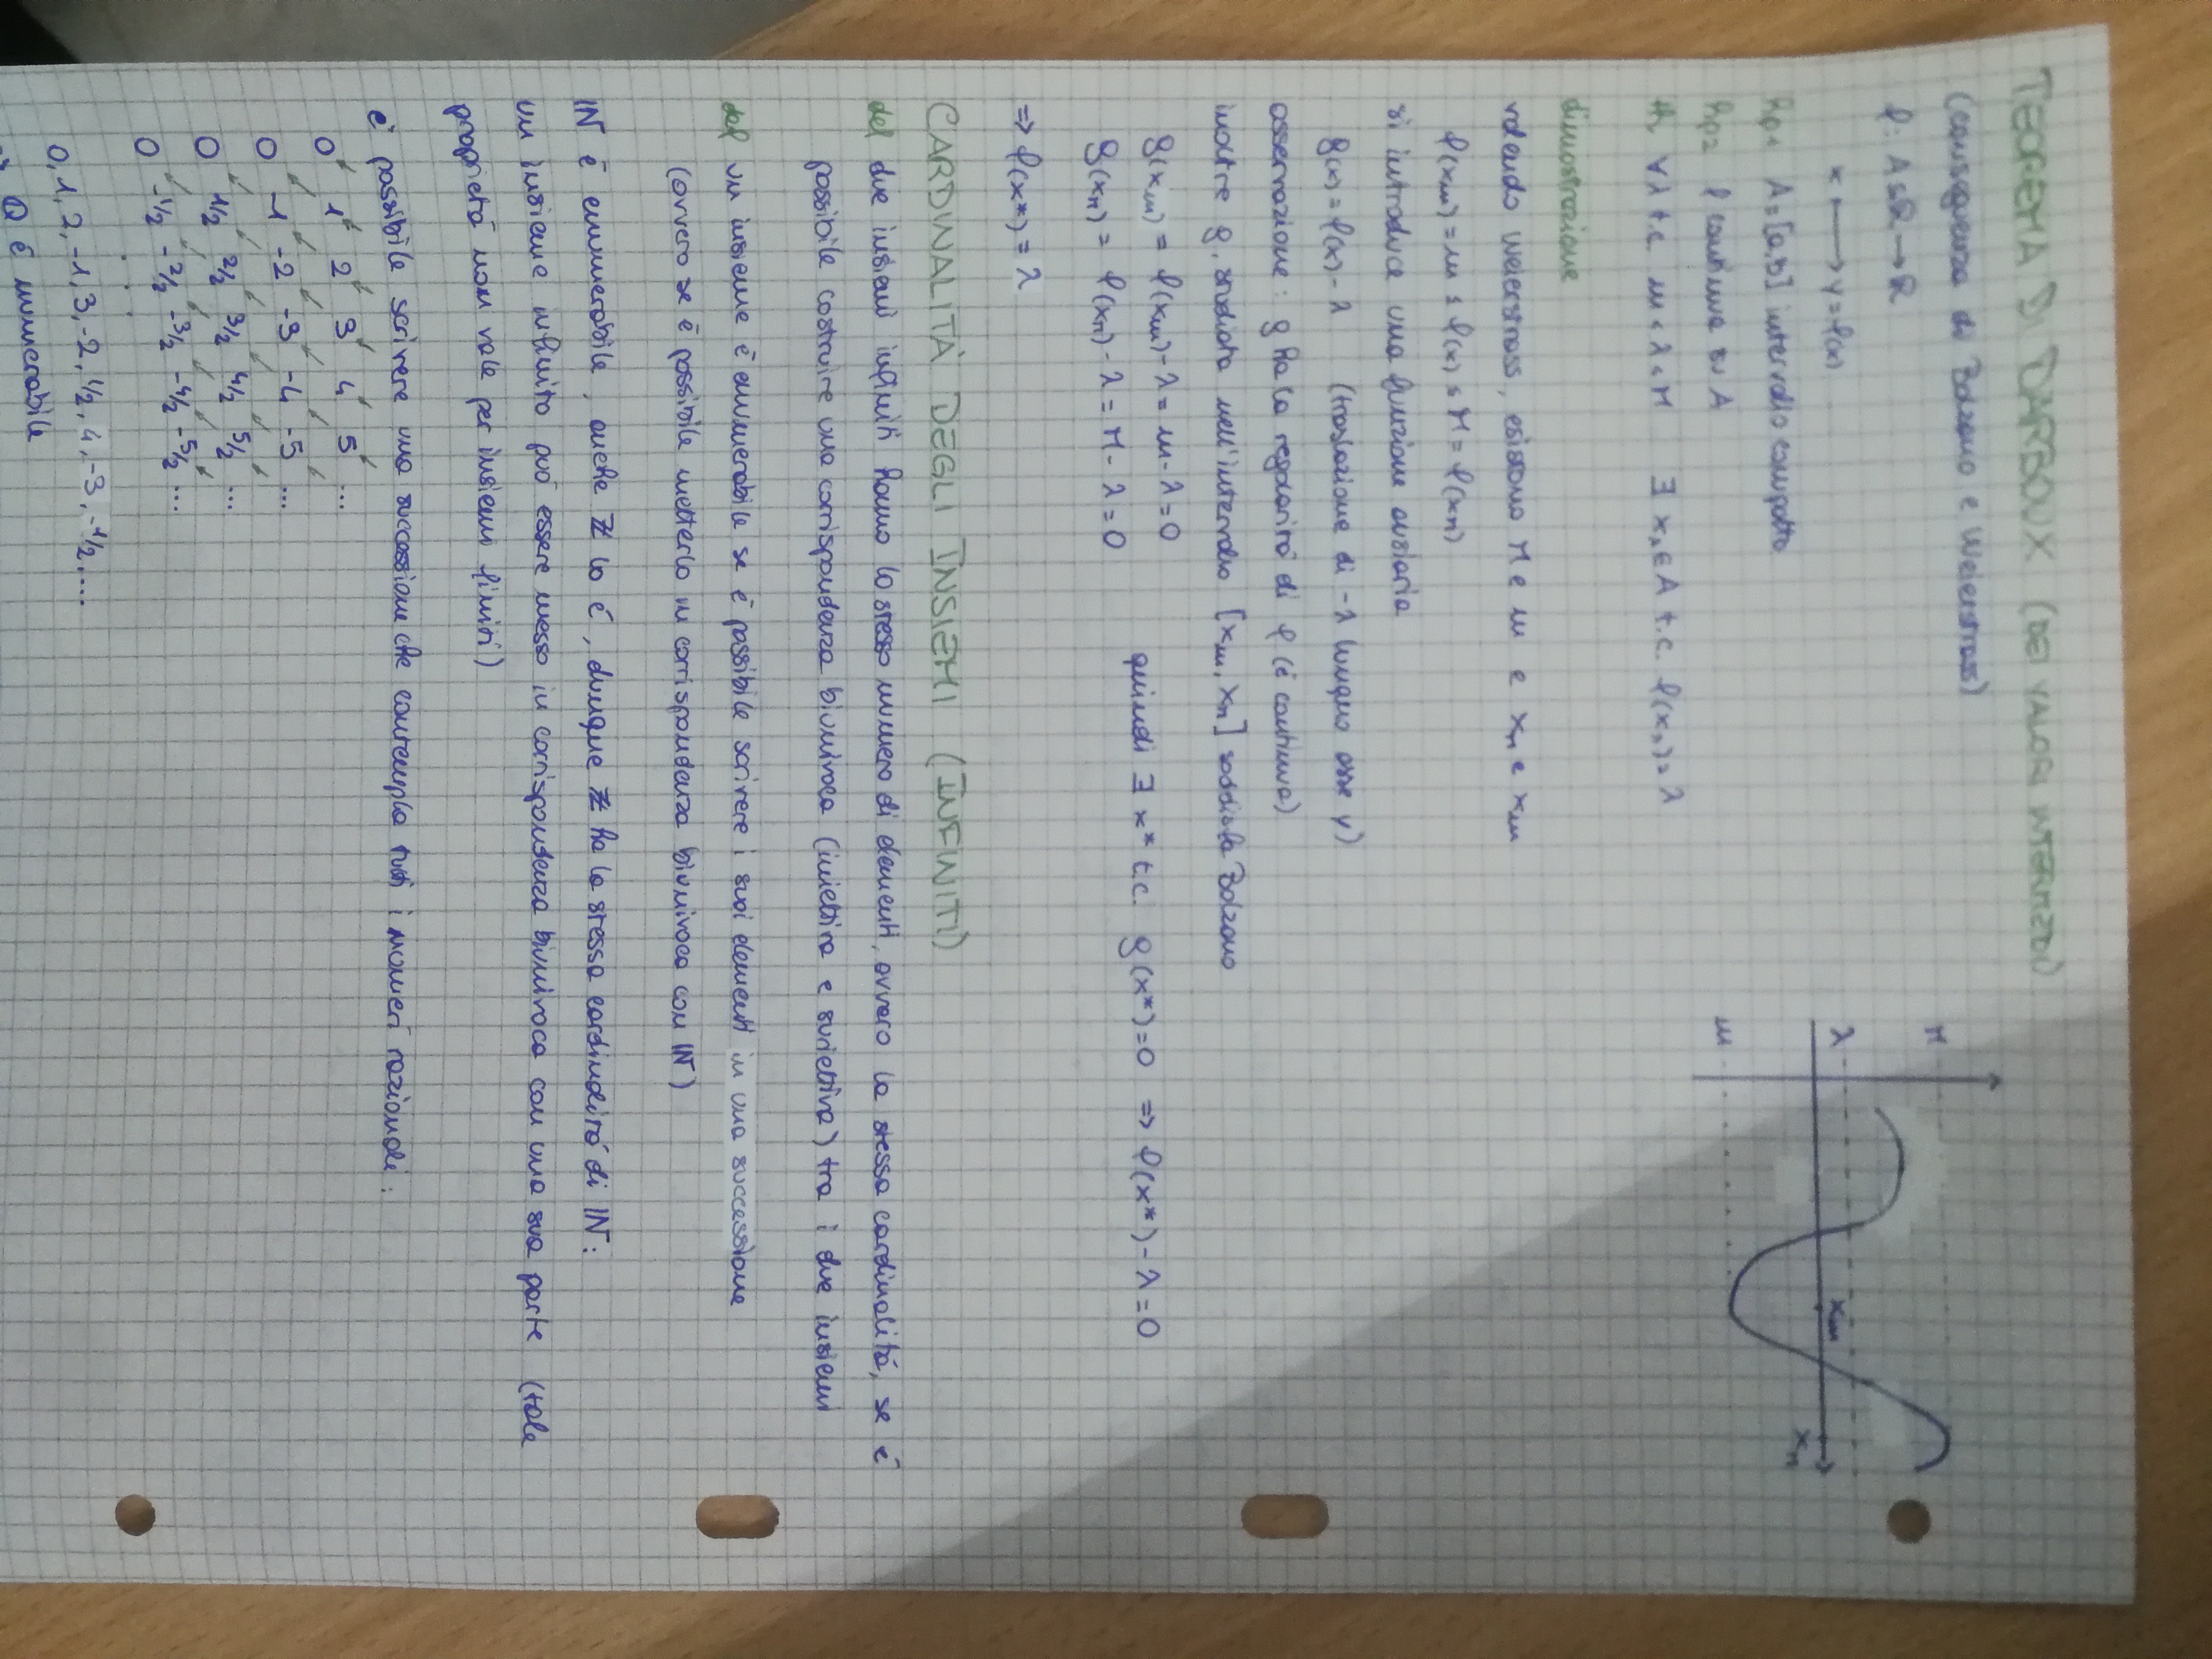 TEOREMA DI DARBOUX (DEI VALORI INTERMEDI)
(conseguenza di Bolzano e Weierstrass)
f: A⊆ℝ→ℝ
x ⟼ y=f(x)
hp1 A=[a,b] intervallo compatto
hp2 f continua su A
th ∀λ t.c. m<λ<M ∃ xλ∈A t.c. f(xλ)=λ
M
λ
m
xm
xM
dimostrazione
valendo Weierstrass, esistono M e m e xM e xm
f(xm)=m ≤ f(x) ≤ M = f(xM)
si introduce una funzione ausiliaria
g(x)=f(x)-λ (traslazione di -λ lungo asse y)
osservazione: g ha la regolarità di f (è continua)
inoltre g, studiata nell'intervallo [xm, xM] soddisfa Bolzano
g(xm) = f(xm)-λ = m-λ = 0
g(xM) = f(xM)-λ = M-λ = 0
quindi ∃ x* t.c. g(x*)=0 ⇒ f(x*)-λ=0
⇒ f(x*)=λ
CARDINALITÀ DEGLI INSIEMI (INFINITI)
def due insiemi infiniti hanno lo stesso numero di elementi, ovvero la stessa cardinalità, se è
possibile costruire una corrispondenza biunivoca (iniettiva e suriettiva) tra i due insiemi
def un insieme è enumerabile se è possibile scrivere i suoi elementi in una successione
(ovvero se è possibile metterlo in corrispondenza biunivoca con ℕ)
ℕ è enumerabile, anche ℤ lo è, dunque ℤ ha la stessa cardinalità di ℕ:
un insieme infinito può essere messo in corrispondenza biunivoca con una sua parte (tale
proprietà non vale per insiemi finiti)
è possibile scrivere una successione che contempla tutti i numeri razionali:
0 1 2 3 4 5 ...
0 -1 -2 -3 -4 -5 ...
0 1/2 2/2 3/2 4/2 5/2 ...
0 -1/2 -2/2 -3/2 -4/2 -5/2 ...
0, 1, 2, -1, 3, -2, 1/2, 4, -3, -1/2, ....
ℚ è numerabile